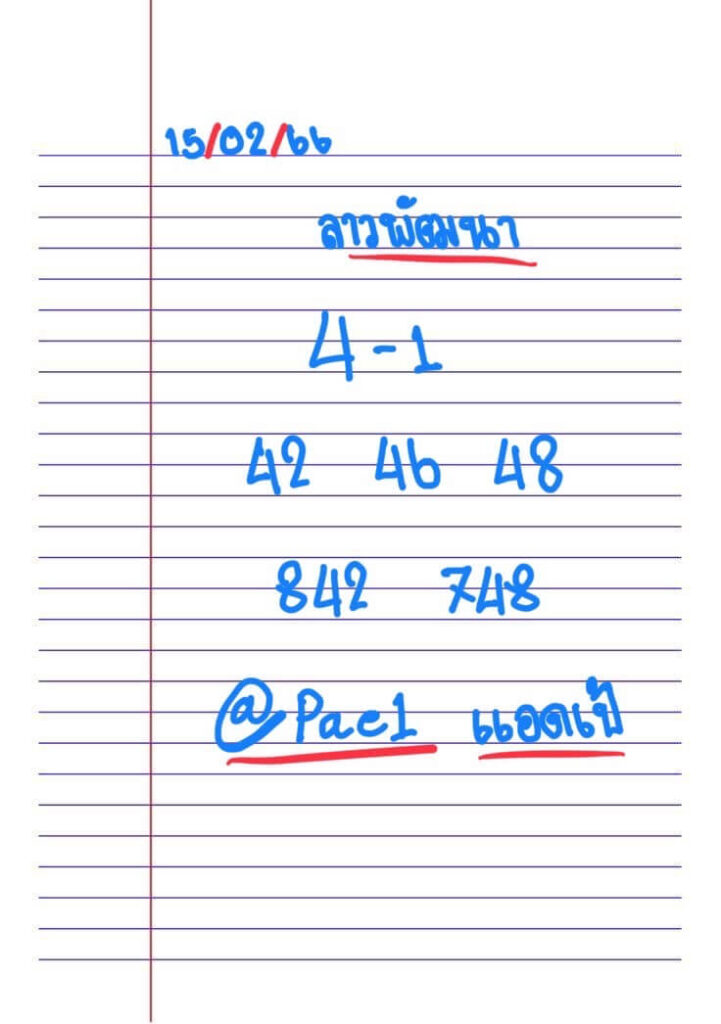 15/02/66
ลาวพัฒนา
4-1
42 46 48
842 748
@Pae1 แอดเป้